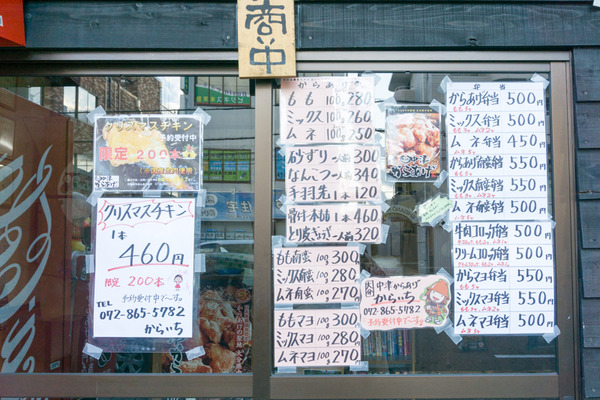 商中
クリスマスチキン
予約受付中
限定 200本
クリスマスチキン
1本
460円
限定 200本
予約受付中で〜す。
TEL
072-865-5782
からいち
からあげ
もも 100g 280
ミックス 100g 260
ムネ 100g 250
砂ずり 一人前 300
なんこつ 一人前 340
手羽先 1本 120
骨付本もも 1本 460
とり皮ぎょうざ 一人前 320
もも南蛮 100g 300
ミックス南蛮 100g 280
ムネ南蛮 100g 270
ももマヨ 100g 300
ミックスマヨ 100g 280
ムネマヨ 100g 270
中津からあげ
からいち
予約受付中で〜す
072-865-5782
弁当
からあげ弁当 500円
ミックス弁当 500円
ムネ弁当 450円
からあげ南蛮弁当 550円
ミックス南蛮弁当 550円
ムネ南蛮弁当 500円
牛肉コロッケ弁当 500円
クリームコロッケ弁当 500円
からマヨ弁当 550円
ミックスマヨ弁当 550円
ムネマヨ弁当 500円